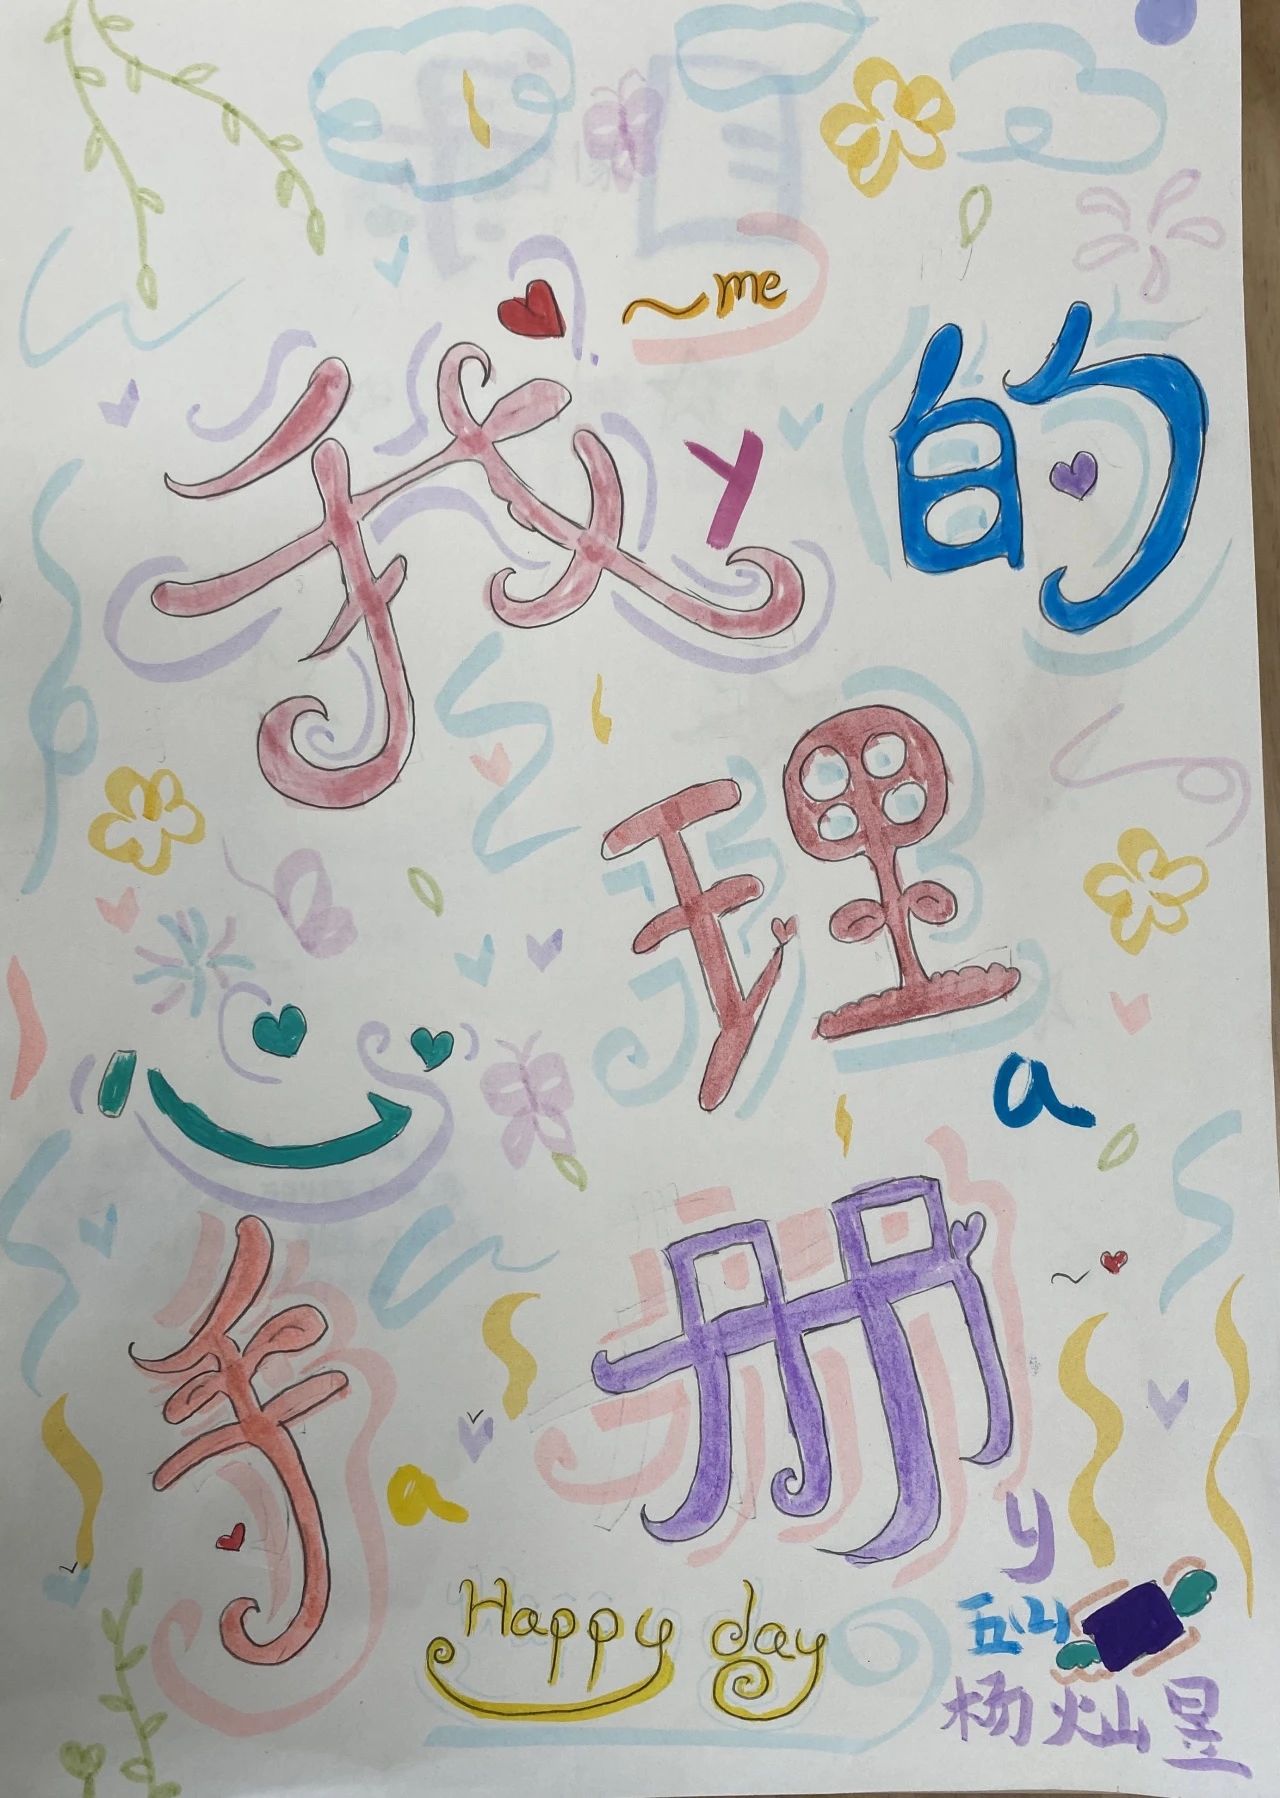 ~me
我的
y
心理
a
手册
a
y
Happy day
五山
杨灿昱